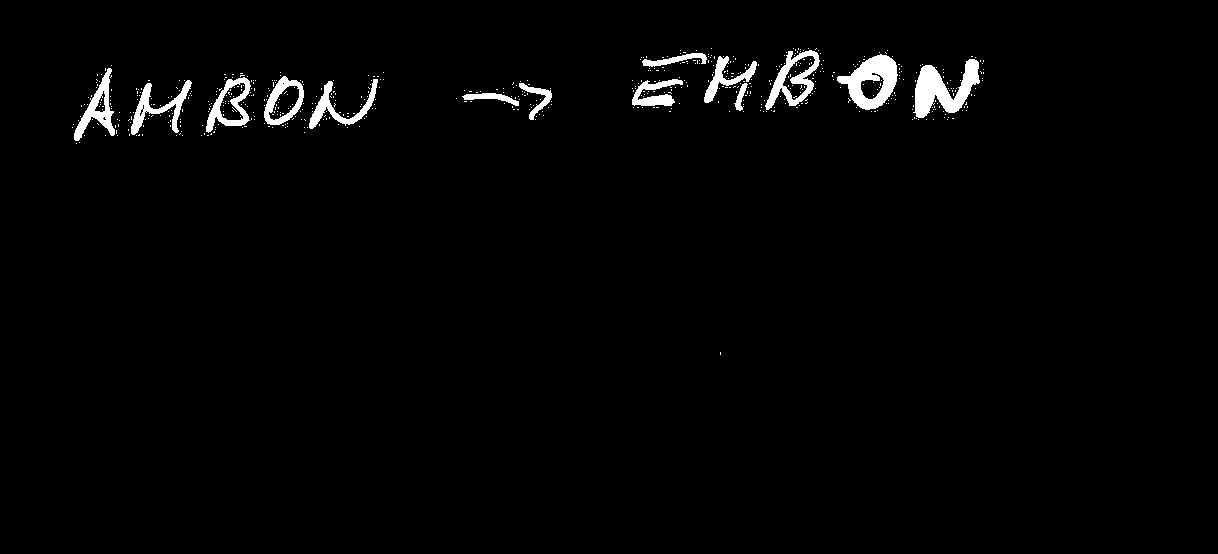 AMBON → EMBON